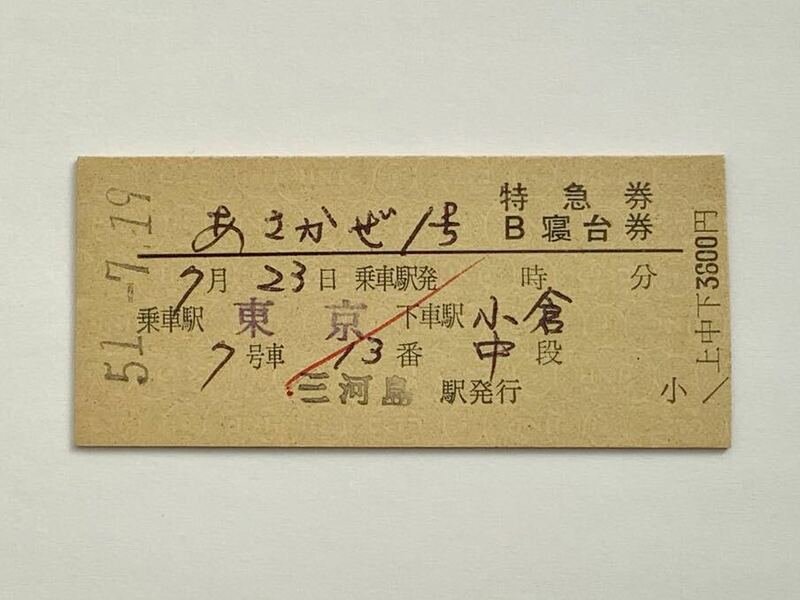 51.-7.19
特急券
あさかぜ1号 B寝台券
7月23日 乗車駅発 時 分
乗車駅 東京 下車駅 小倉
7号車 13番 中段
三河島 駅発行 小
上中下3600円